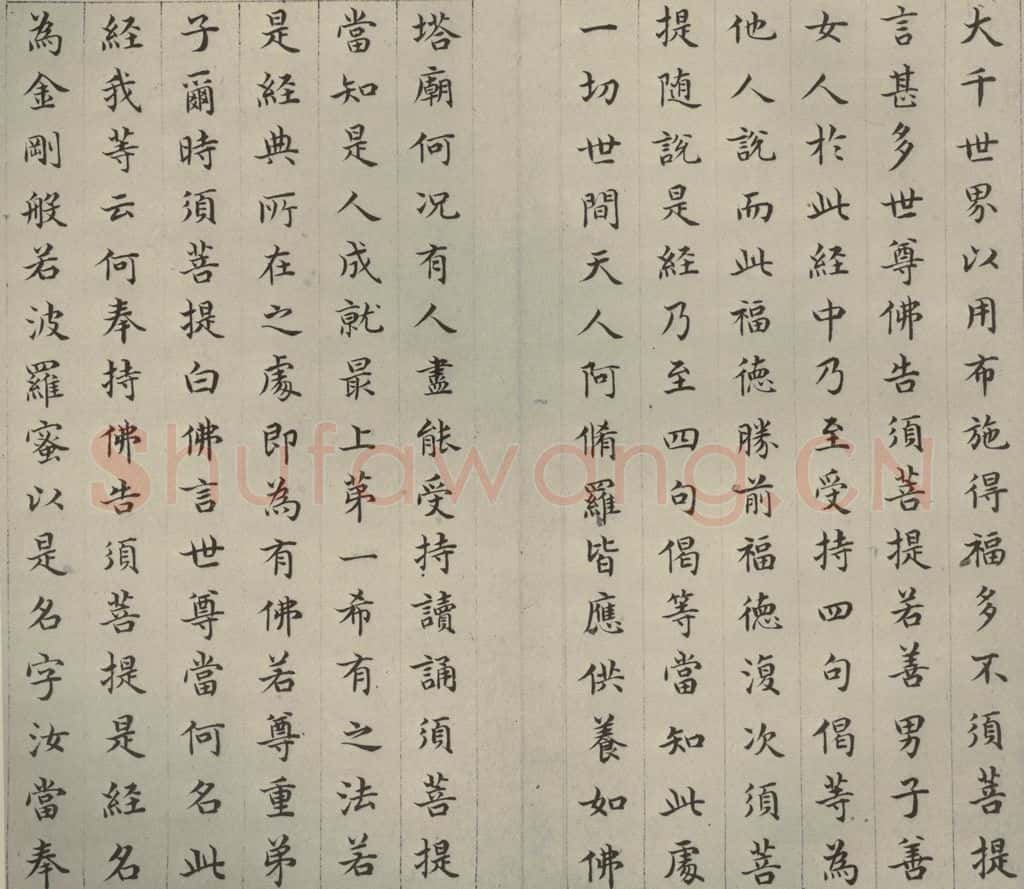 大千世界以用布施得福多不須菩提
言甚多世尊佛告須菩提若善男子善
女人於此経中乃至受持四句偈等為
他人說而此福徳勝前福徳復次須菩
提随說是経乃至四句偈等當知此處
一切世間天人阿脩羅皆應供養如佛
塔廟何况有人盡能受持讀誦須菩提
當知是人成就最上苐一希有之法若
是経典所在之處即為有佛若尊重弟
子爾時須菩提白佛言世尊當何名此
経我等云何奉持佛告須菩提是経名
為金剛般若波羅蜜以是名字汝當奉
Shufawang.CN